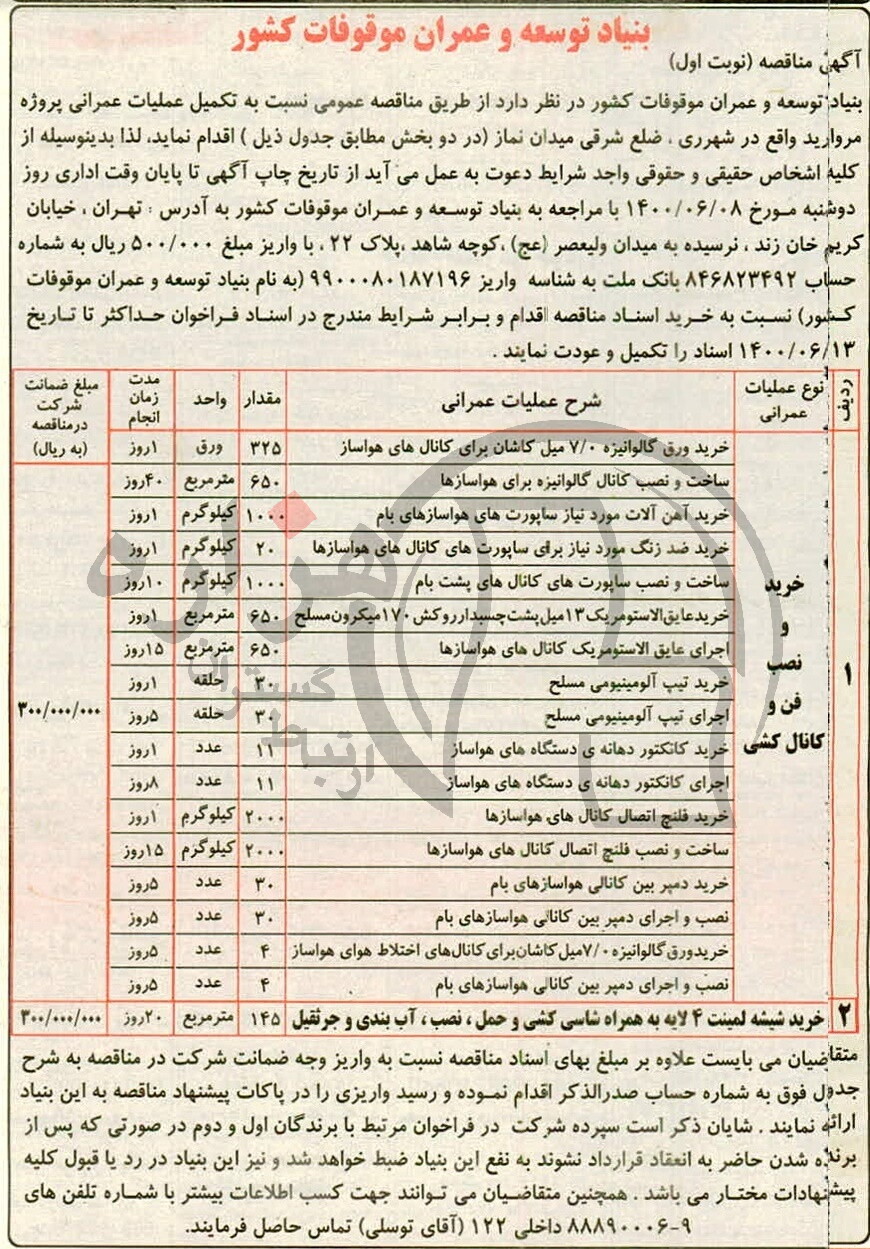 بنیاد توسعه و عمران موقوفات کشور
آگهی مناقصه (نوبت اول)
بنیاد توسعه و عمران موقوفات کشور در نظر دارد از طریق مناقصه عمومی نسبت به تکمیل عملیات عمرانی پروژه
مروارید واقع در شهرری ، ضلع شرقی میدان نماز (در دو بخش مطابق جدول ذیل ) اقدام نماید، لذا بدینوسیله از
کلیه اشخاص حقیقی و حقوقی واجد شرایط دعوت به عمل می آید از تاریخ چاپ آگهی تا پایان وقت اداری روز
دوشنبه مورخ ۱۴۰۰/۰۶/۰۸ با مراجعه به بنیاد توسعه و عمران موقوفات کشور به آدرس : تهران ، خیابان
کریم خان زند ، نرسیده به میدان ولیعصر (عج) ،کوچه شاهد ،پلاک ۲۲ ، با واریز مبلغ ۵۰۰/۰۰۰ ریال به شماره
حساب ۸۴۶۸۲۳۴۹۲ بانک ملت به شناسه واریز ۹۹۰۰۰۸۰۱۸۷۱۹۶ (به نام بنیاد توسعه و عمران موقوفات
کشور) نسبت به خرید اسناد مناقصه اقدام و برابر شرایط مندرج در اسناد فراخوان حداکثر تا تاریخ
۱۴۰۰/۰۶/۱۳ اسناد را تکمیل و عودت نمایند .
ردیف نوع عملیات عمرانی شرح عملیات عمرانی مقدار واحد مدت زمان انجام مبلغ ضمانت شرکت درمناقصه (به ریال)
۱ خرید و نصب فن و کانال کشی ۳۰۰/۰۰۰/۰۰۰
خرید ورق گالوانیزه ۷/۰ میل کاشان برای کانال های هواساز ۳۲۵ ورق ۱روز
ساخت و نصب کانال گالوانیزه برای هواسازها ۶۵۰ مترمربع ۴۰روز
خرید آهن آلات مورد نیاز ساپورت های هواسازهای بام ۱۰۰۰ کیلوگرم ۱روز
خرید ضد زنگ مورد نیاز برای ساپورت های کانال های هواسازها ۲۰ کیلوگرم ۱روز
ساخت و نصب ساپورت های کانال های پشت بام ۱۰۰۰ کیلوگرم ۱۰روز
خریدعایق‌الاستومریک۱۳میل‌پشت‌چسبدارروکش۱۷۰میکرون‌مسلح ۶۵۰ مترمربع ۱روز
اجرای عایق الاستومریک کانال های هواسازها ۶۵۰ مترمربع ۱۵روز
خرید تیپ آلومینیومی مسلح ۳۰ حلقه ۱روز
اجرای تیپ آلومینیومی مسلح ۳۰ حلقه ۵روز
خرید کانکتور دهانه ی دستگاه های هواساز ۱۱ عدد ۱روز
اجرای کانکتور دهانه ی دستگاه های هواساز ۱۱ عدد ۸روز
خرید فلنچ اتصال کانال های هواسازها ۲۰۰۰ کیلوگرم ۱روز
ساخت و نصب فلنچ اتصال کانال های هواسازها ۲۰۰۰ کیلوگرم ۱۵روز
خرید دمپر بین کانالی هواسازهای بام ۳۰ عدد ۵روز
نصب و اجرای دمپر بین کانالی هواسازهای بام ۳۰ عدد ۵روز
خریدورق‌گالوانیزه ۷/۰میل‌کاشان‌برای‌کانال‌های اختلاط هوای هواساز ۴ عدد ۵روز
نصب و اجرای دمپر بین کانالی هواسازهای بام ۴ عدد ۵روز
۲ خرید شیشه لمینت ۴ لایه به همراه شاسی کشی و حمل ، نصب ، آب بندی و جرثقیل ۱۴۵ مترمربع ۲۰روز ۳۰۰/۰۰۰/۰۰۰
متقاضیان می بایست علاوه بر مبلغ بهای اسناد مناقصه نسبت به واریز وجه ضمانت شرکت در مناقصه به شرح
جدول فوق به شماره حساب صدرالذکر اقدام نموده و رسید واریزی را در پاکات پیشنهاد مناقصه به این بنیاد
ارائه نمایند . شایان ذکر است سپرده شرکت در فراخوان مرتبط با برندگان اول و دوم در صورتی که پس از
برنده شدن حاضر به انعقاد قرارداد نشوند به نفع این بنیاد ضبط خواهد شد و نیز این بنیاد در رد یا قبول کلیه
پیشنهادات مختار می باشد . همچنین متقاضیان می توانند جهت کسب اطلاعات بیشتر با شماره تلفن های
۹-۸۸۸۹۰۰۰۶ داخلی ۱۲۲ (آقای توسلی) تماس حاصل فرمایند.
هزاره
ارتباط گستران